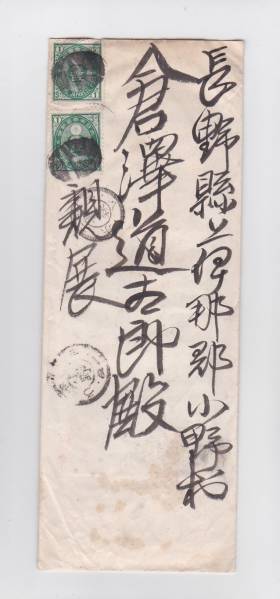 長野縣上伊那郡小野村
倉澤道太郎殿
親展